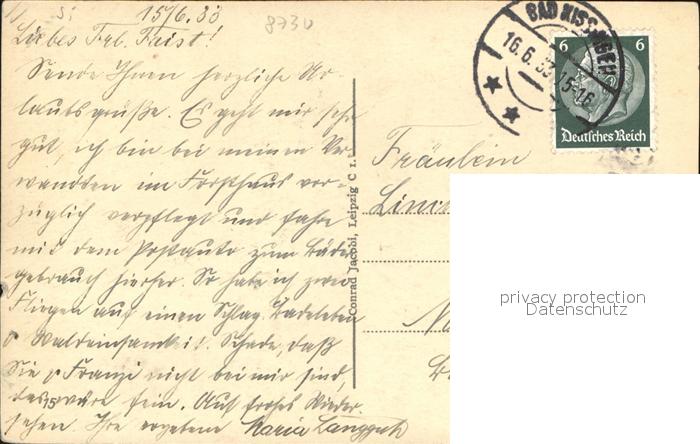 15/6.33
8730
Liebes Frl. Faist!
Sende Ihnen herzliche Ur-
laubsgrüße. Es geht mir sehr
gut, ich bin bei meinen Ver-
wandten im Forsthaus vor-
züglich verpflegt und fahre
mit dem Postauto zum Bäder
gebrauch hierher. So habe ich zwei
Fliegen auf einen Schlag. Badeleben
Waldeinsamkeit! Schade, daß
Sie Franzi nicht bei mir sind,
das wäre fein. Auf frohes Wieder-
sehen. Ihre ergebene Maria Langguth
Conrad Jacobi, Leipzig C 1.
BAD KISSINGEN
16.6.33.15-16
6 6
Deutsches Reich
Fräulein
privacy protection
Datenschutz